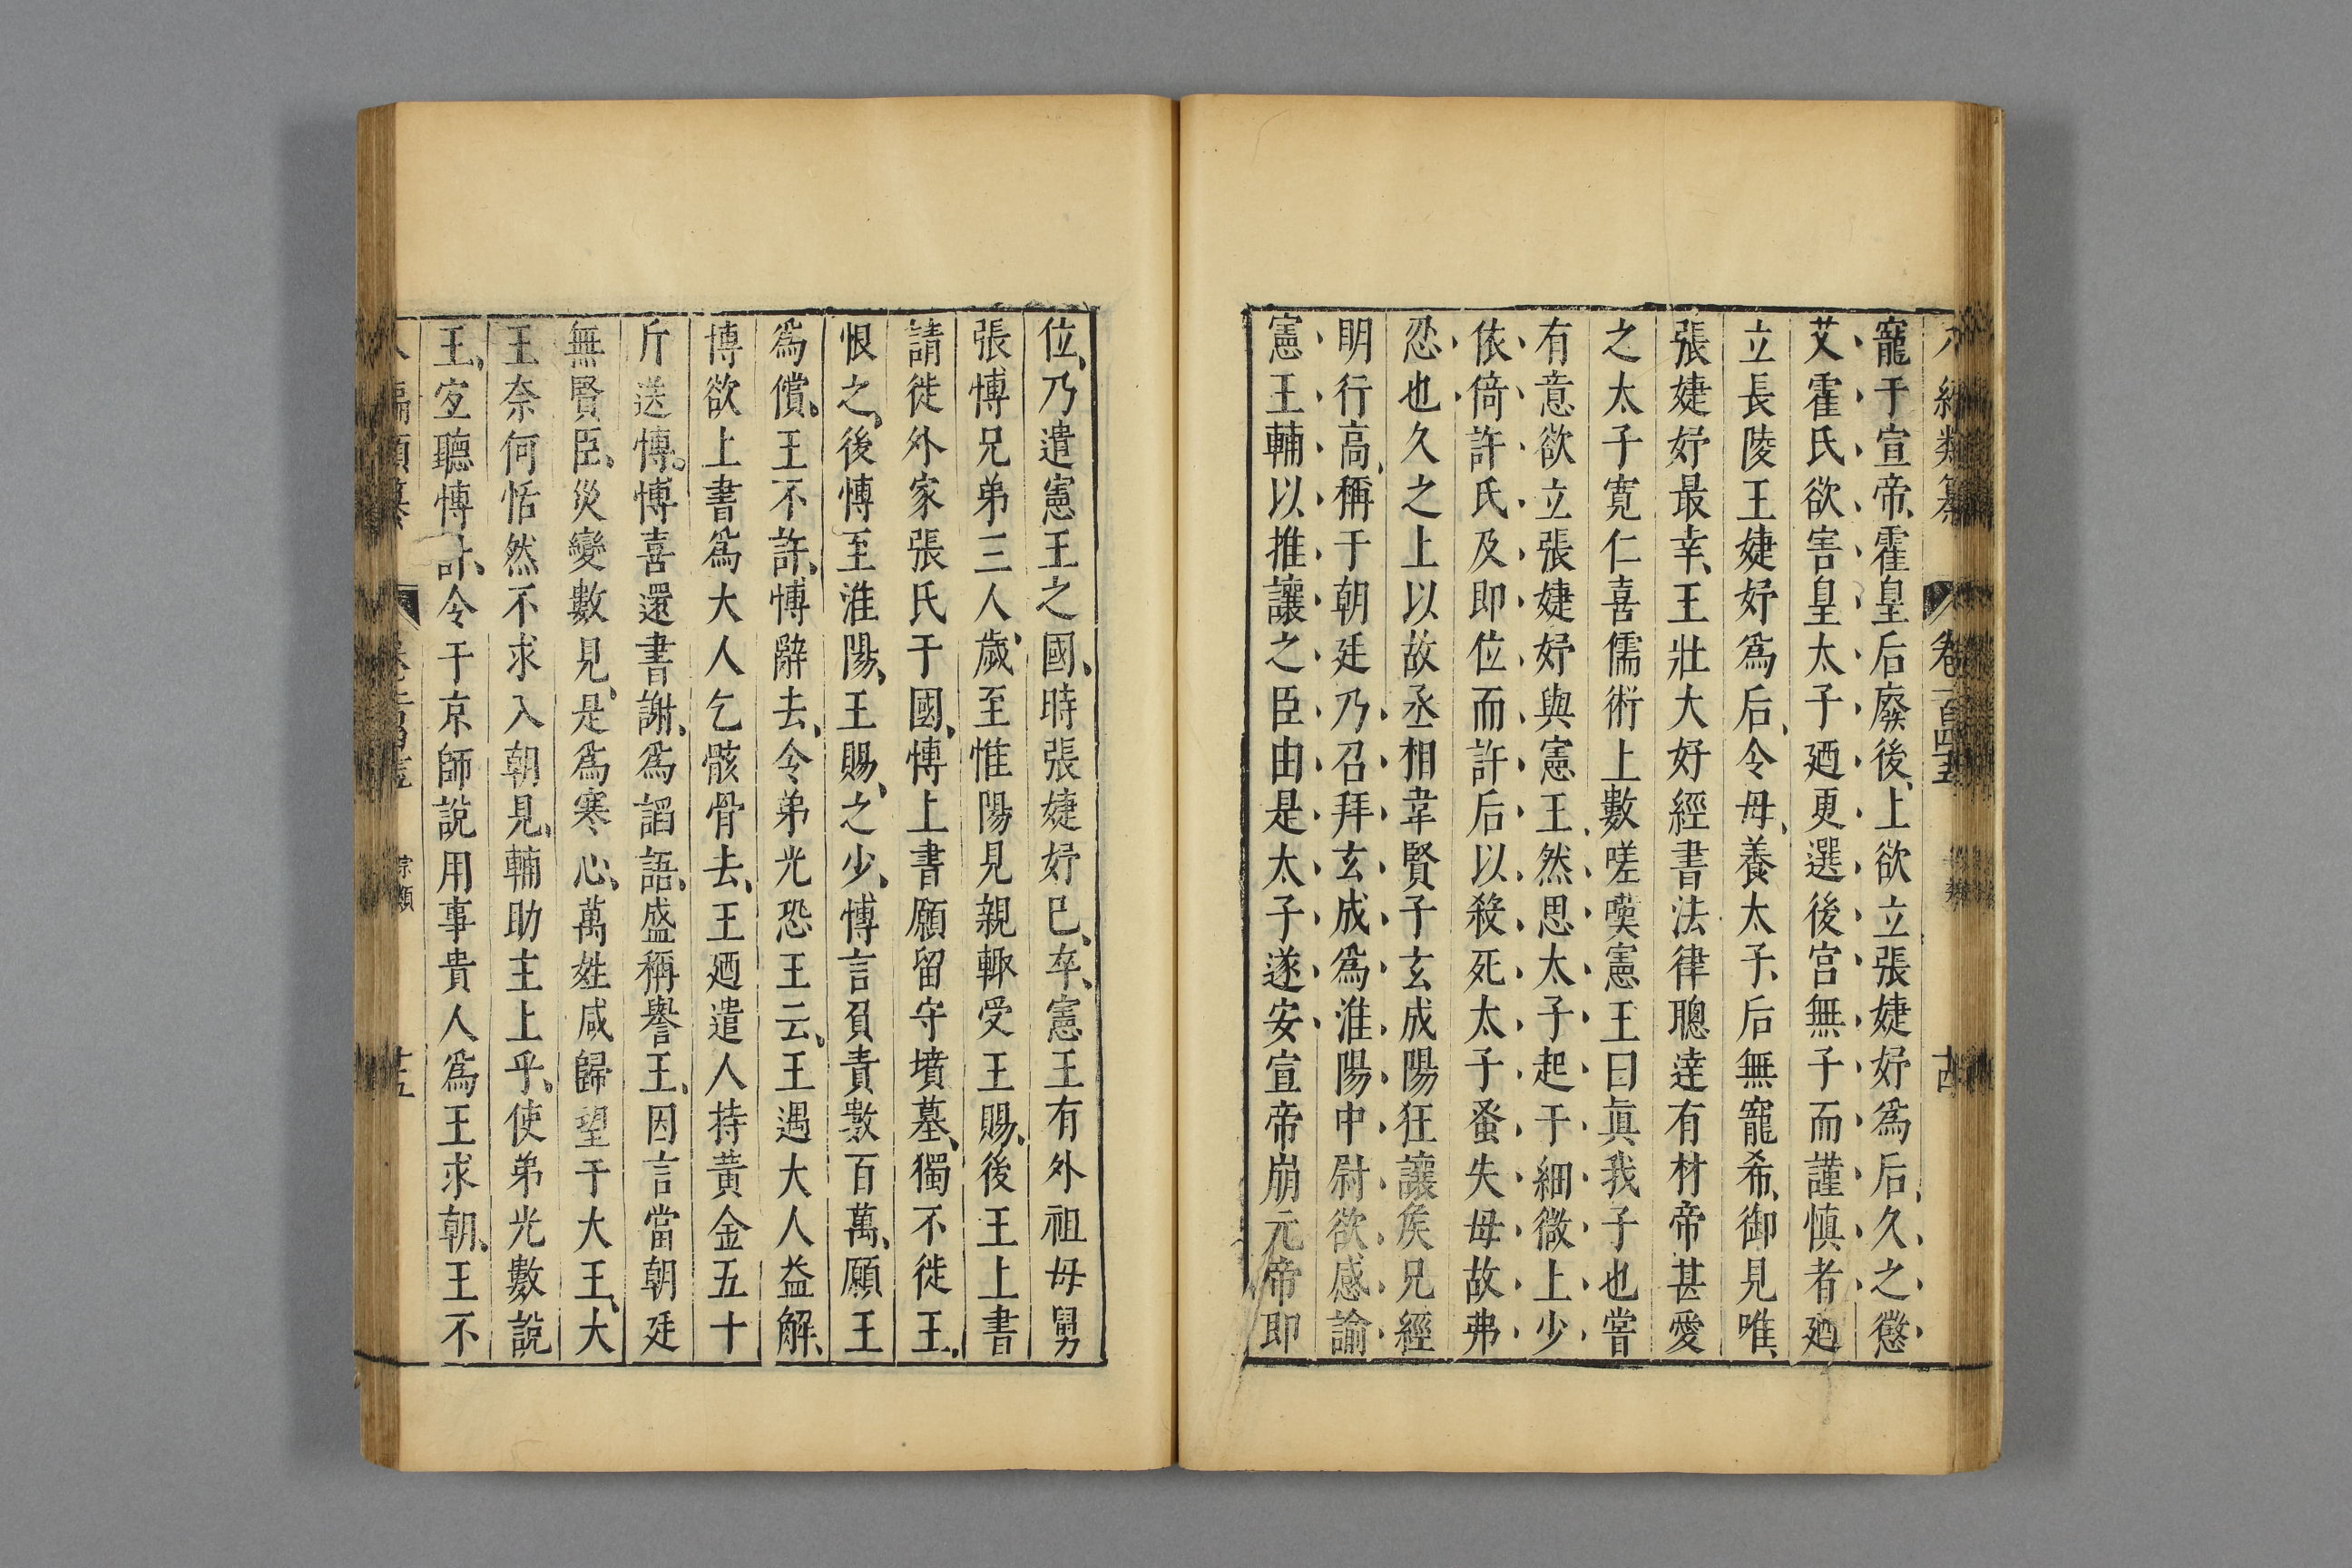 卷一百四十五
寵于宣帝、霍皇后廢後、上欲立張婕妤爲后、久之懲
艾霍氏欲害皇太子廼更選後宮無子而謹慎者廼
立長陵王婕妤爲后、令母、養太子、后無寵希、御見唯、
張婕妤最幸、王壯大好經書法律聰達有材帝甚愛
之太子寬仁喜儒術上數嗟嘆憲王曰眞我子也嘗
有意欲立張婕妤與憲王、然思太子起于細微上少
依倚許氏及即位而許后以殺死太子蚤失母故弗
忍也久之上以故丞相韋賢子玄成陽狂讓矦兄經
明行高、稱于朝廷乃召拜玄成爲淮陽中尉欲感諭
憲王輔以推讓之臣由是太子遂安宣帝崩元帝即
位、乃遣憲王之國、時張婕妤已、卒、憲王有外祖母舅
張博兄弟三人歲至惟陽見親輙受王賜、後王上書
請徙外家張氏于國、博上書願留守墳墓、獨不徙王、
恨之、後博至淮陽、王賜、之少、博言負責數百萬、願王
爲償、王不許、博辭去、令弟光恐王云、王遇大人益解、
博欲上書爲大人乞骸骨去、王廼遣人持黃金五十
斤送博。博喜還書謝、爲謟語、盛稱譽王、因言當朝廷
無賢臣、災變數見、是爲寒心、萬姓咸歸望于大王、大
王奈何恬然不求入朝見、輔助主上乎。使弟光數說
王、宐聽博計、令于京師說用事貴人爲王求朝、王不